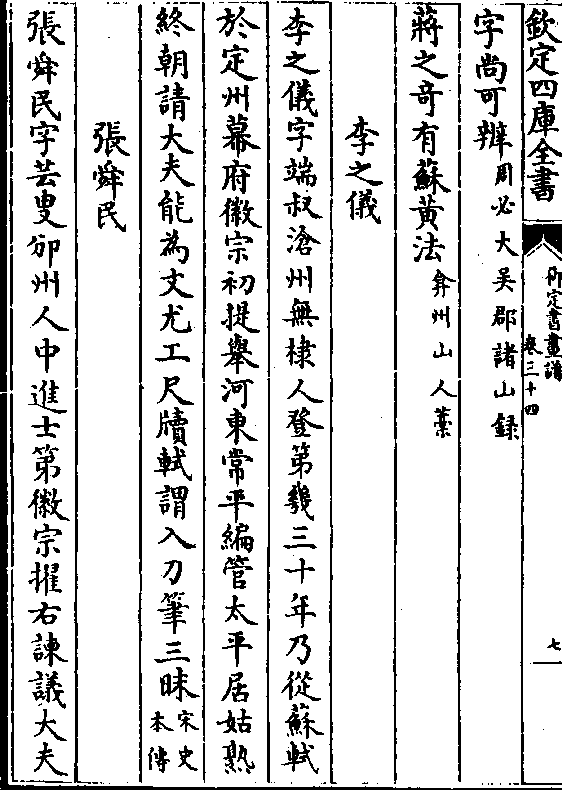 欽定四庫全書
御定書畫譜
卷三十四
七
字尚可辨周必大吳郡諸山錄
蔣之奇有蘇黃法弇州山人藁
李之儀
李之儀字端叔滄州無棣人登第幾三十年乃從蘇軾
於定州幕府徽宗初提舉河東常平編管太平居姑熟
終朝請大夫能為文尤工尺牘軾謂入刀筆三昧宋史本傳
張舜民
張舜民字芸叟邠州人中進士第徽宗擢右諫議大夫